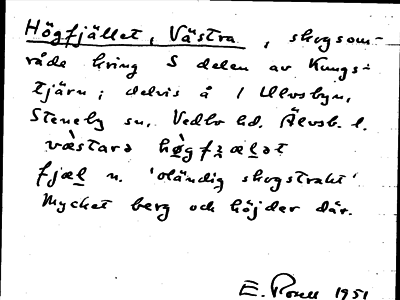 Högfjället, Västra, skogsom-
råde kring S delen av Kungs-
tjärn; delvis å 1 Ulvsbyn,
Steneby sn, Vedbo hd. Älvsb. l.
væ̀starə hø̀gfʒæḷət
fjæḷ n. 'oländig skogstrakt'
Mycket berg och höjder där.
E. 1951